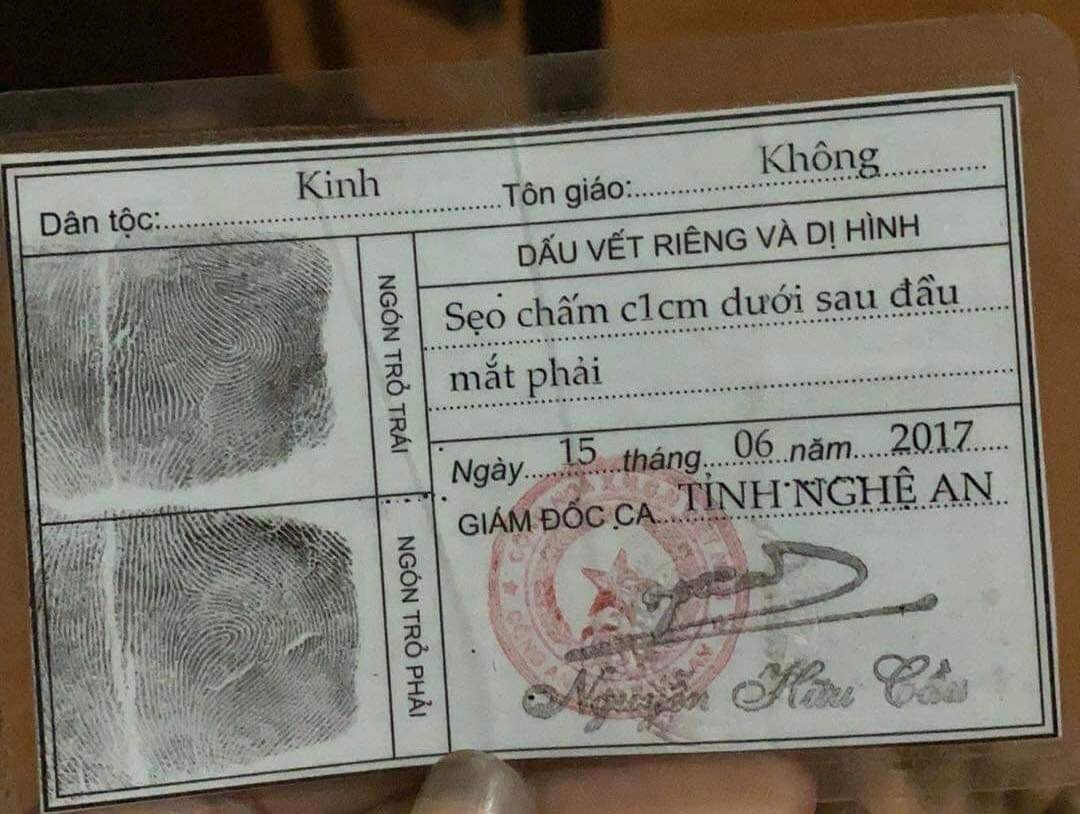 Dân tộc: Kinh Tôn giáo: Không
NGÓN TRỎ TRÁI
DẤU VẾT RIÊNG VÀ DỊ HÌNH
Sẹo chấm c1cm dưới sau đầu
mắt phải
Ngày 15 tháng 06 năm 2017
GIÁM ĐỐC CA TỈNH NGHỆ AN
NGÓN TRỎ PHẢI
Nguyễn Hữu Cầu